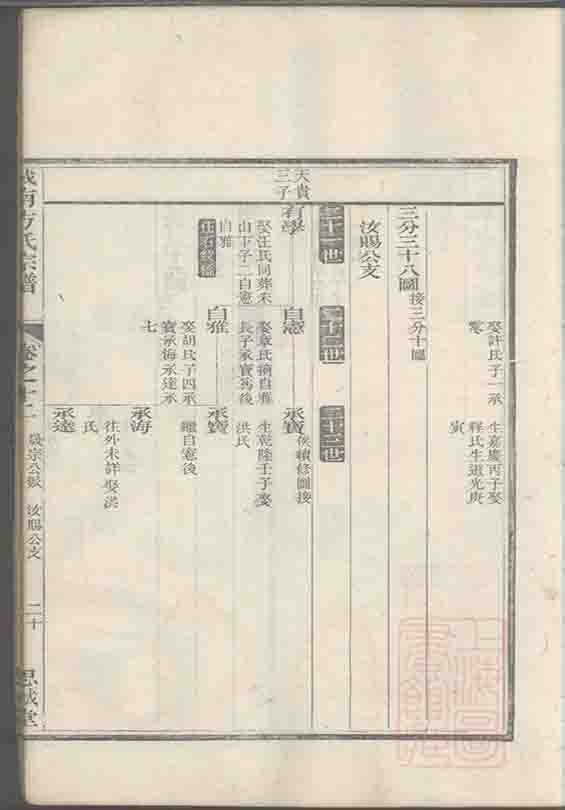 娶許氏子一承
生嘉慶丙子娶
程氏生道光庚
寅
三分三十八圖接三分十圖
汝賜公支
二十一世
二十二世
二十三世
天貴
三子
有學
娶汪氏同葬未
山下子二自憲
自雅
自憲
娶章氏繼自雅
長子承寶為後
承寶
俟續修圖接
生乾隆壬子娶
洪氏
自雅
娶胡氏子四承
寶承海承達承
七
承寶
繼自憲後
承海
往外未詳娶洪
氏
承達
城南方氏宗譜
卷之十二
汝賜公支
二十
思誠堂
上海圖書館藏